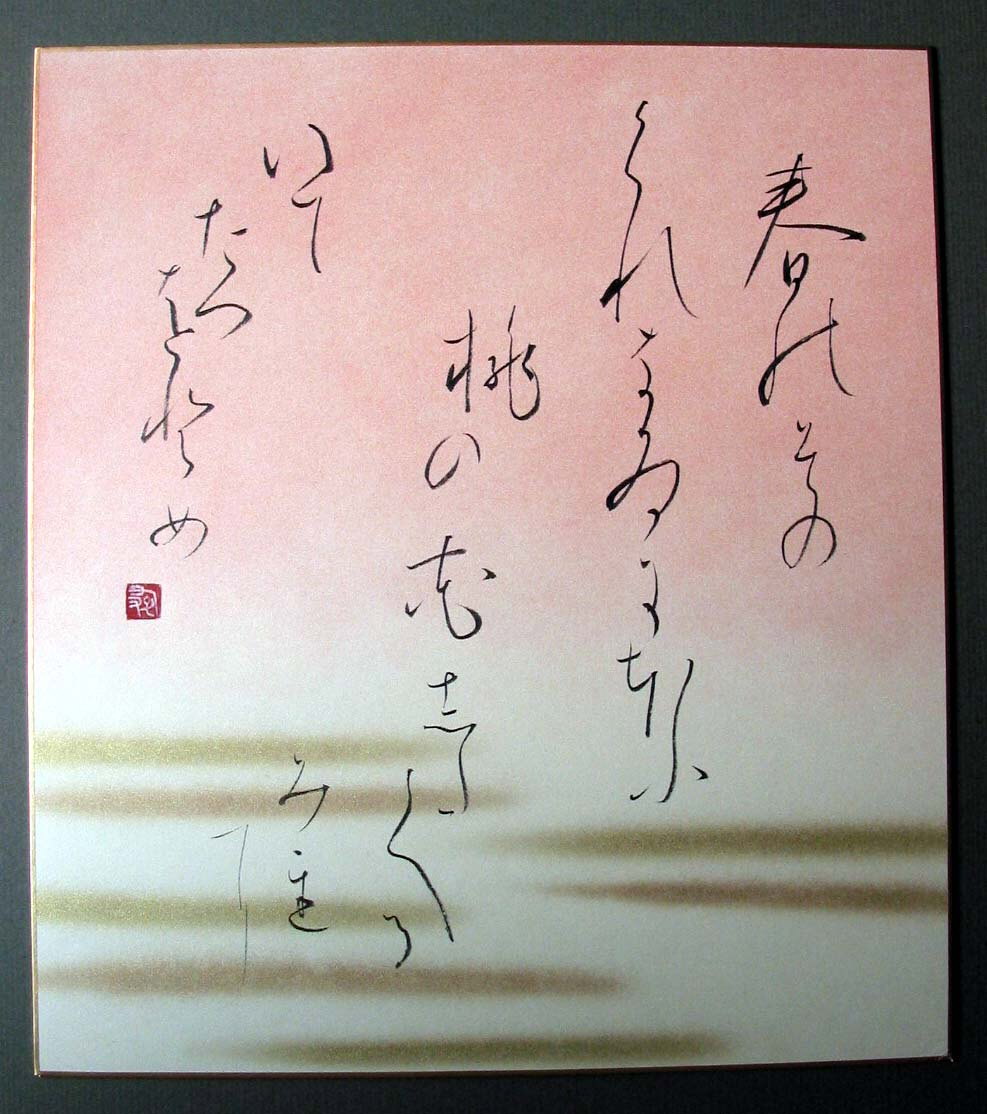 春のその
くれなゐにほふ
桃の花した
てる
みち
に
いて
たつ
をとめ